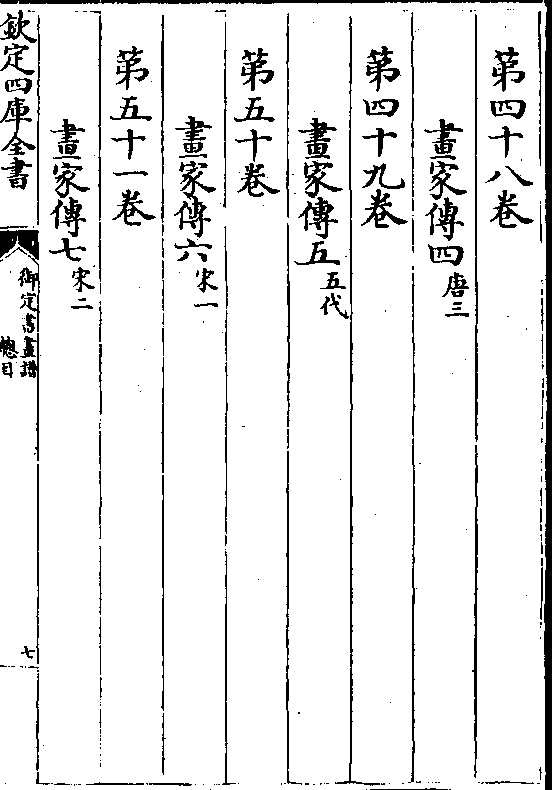 第四十八卷
畫家傳四唐三
第四十九卷
畫家傳五五代
第五十卷
畫家傳六宋一
第五十一卷
畫家傳七宋二
欽定四庫全書
御定書畫譜
總目
七